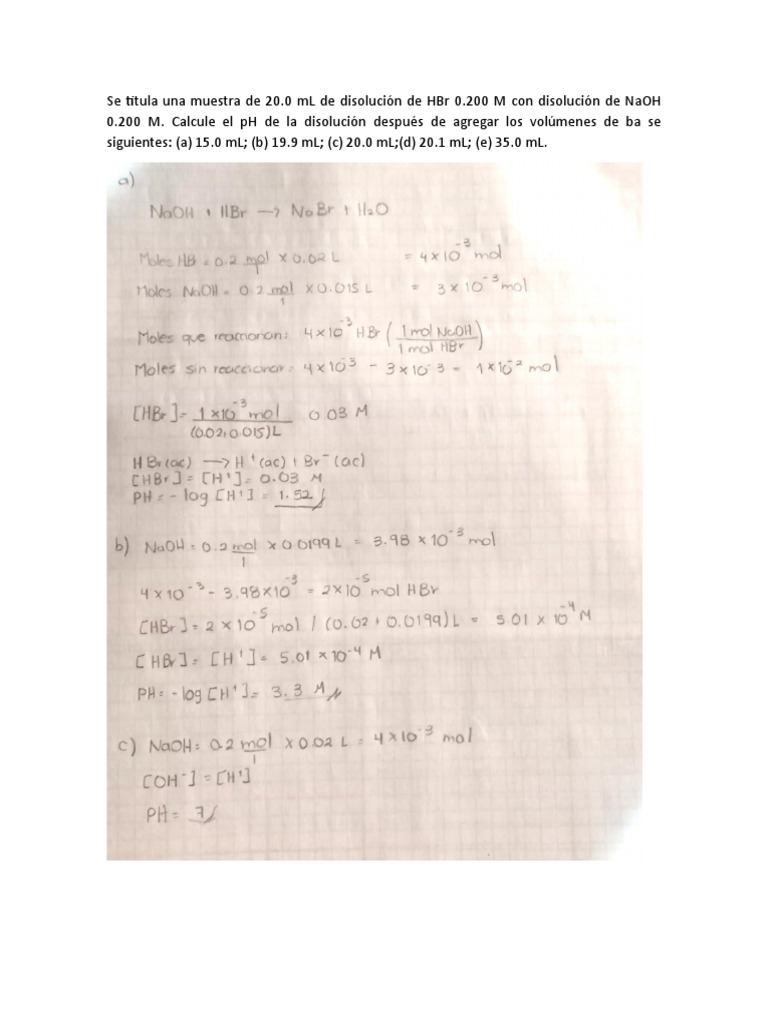 Se titula una muestra de 20.0 mL de disolución de HBr 0.200 M con disolución de NaOH
0.200 M. Calcule el pH de la disolución después de agregar los volúmenes de ba se
siguientes: (a) 15.0 mL; (b) 19.9 mL; (c) 20.0 mL;(d) 20.1 mL; (e) 35.0 mL.
a)
NaOH + HBr → NaBr + H₂O
Moles HB = 0.2 mol x 0.02 L = 4 x 10⁻³ mol
Moles NaOH = 0.2 mol/1 x 0.015 L = 3 x 10⁻³ mol
Moles que reaccionan: 4x10⁻³ HBr (1 mol NaOH / 1 mol HBr)
Moles sin reaccionar: 4x10⁻³ - 3x10⁻³ = 1x10⁻² mol
[HBr] = 1x10⁻³ mol / (0.02+0.015)L 0.03 M
HBr(ac) → H⁺(ac) + Br⁻(ac)
[HBr] = [H⁺] = 0.03 M
PH = - log [H⁺] = 1.52
b) NaOH = 0.2 mol/1 x 0.0199 L = 3.98 x 10⁻³ mol
4x10⁻³ - 3.98x10⁻³ = 2x10⁻⁵ mol HBr
[HBr] = 2 x 10⁻⁵ mol / (0.02 + 0.0199) L = 5.01 x 10⁻⁴ M
[HBr] = [H⁺] = 5.01 x 10⁻⁴ M
PH = - log [H⁺] = 3.3 M
c) NaOH = 0.2 mol/1 x 0.02 L = 4x10⁻³ mol
[OH⁻] = [H⁺]
PH = 7